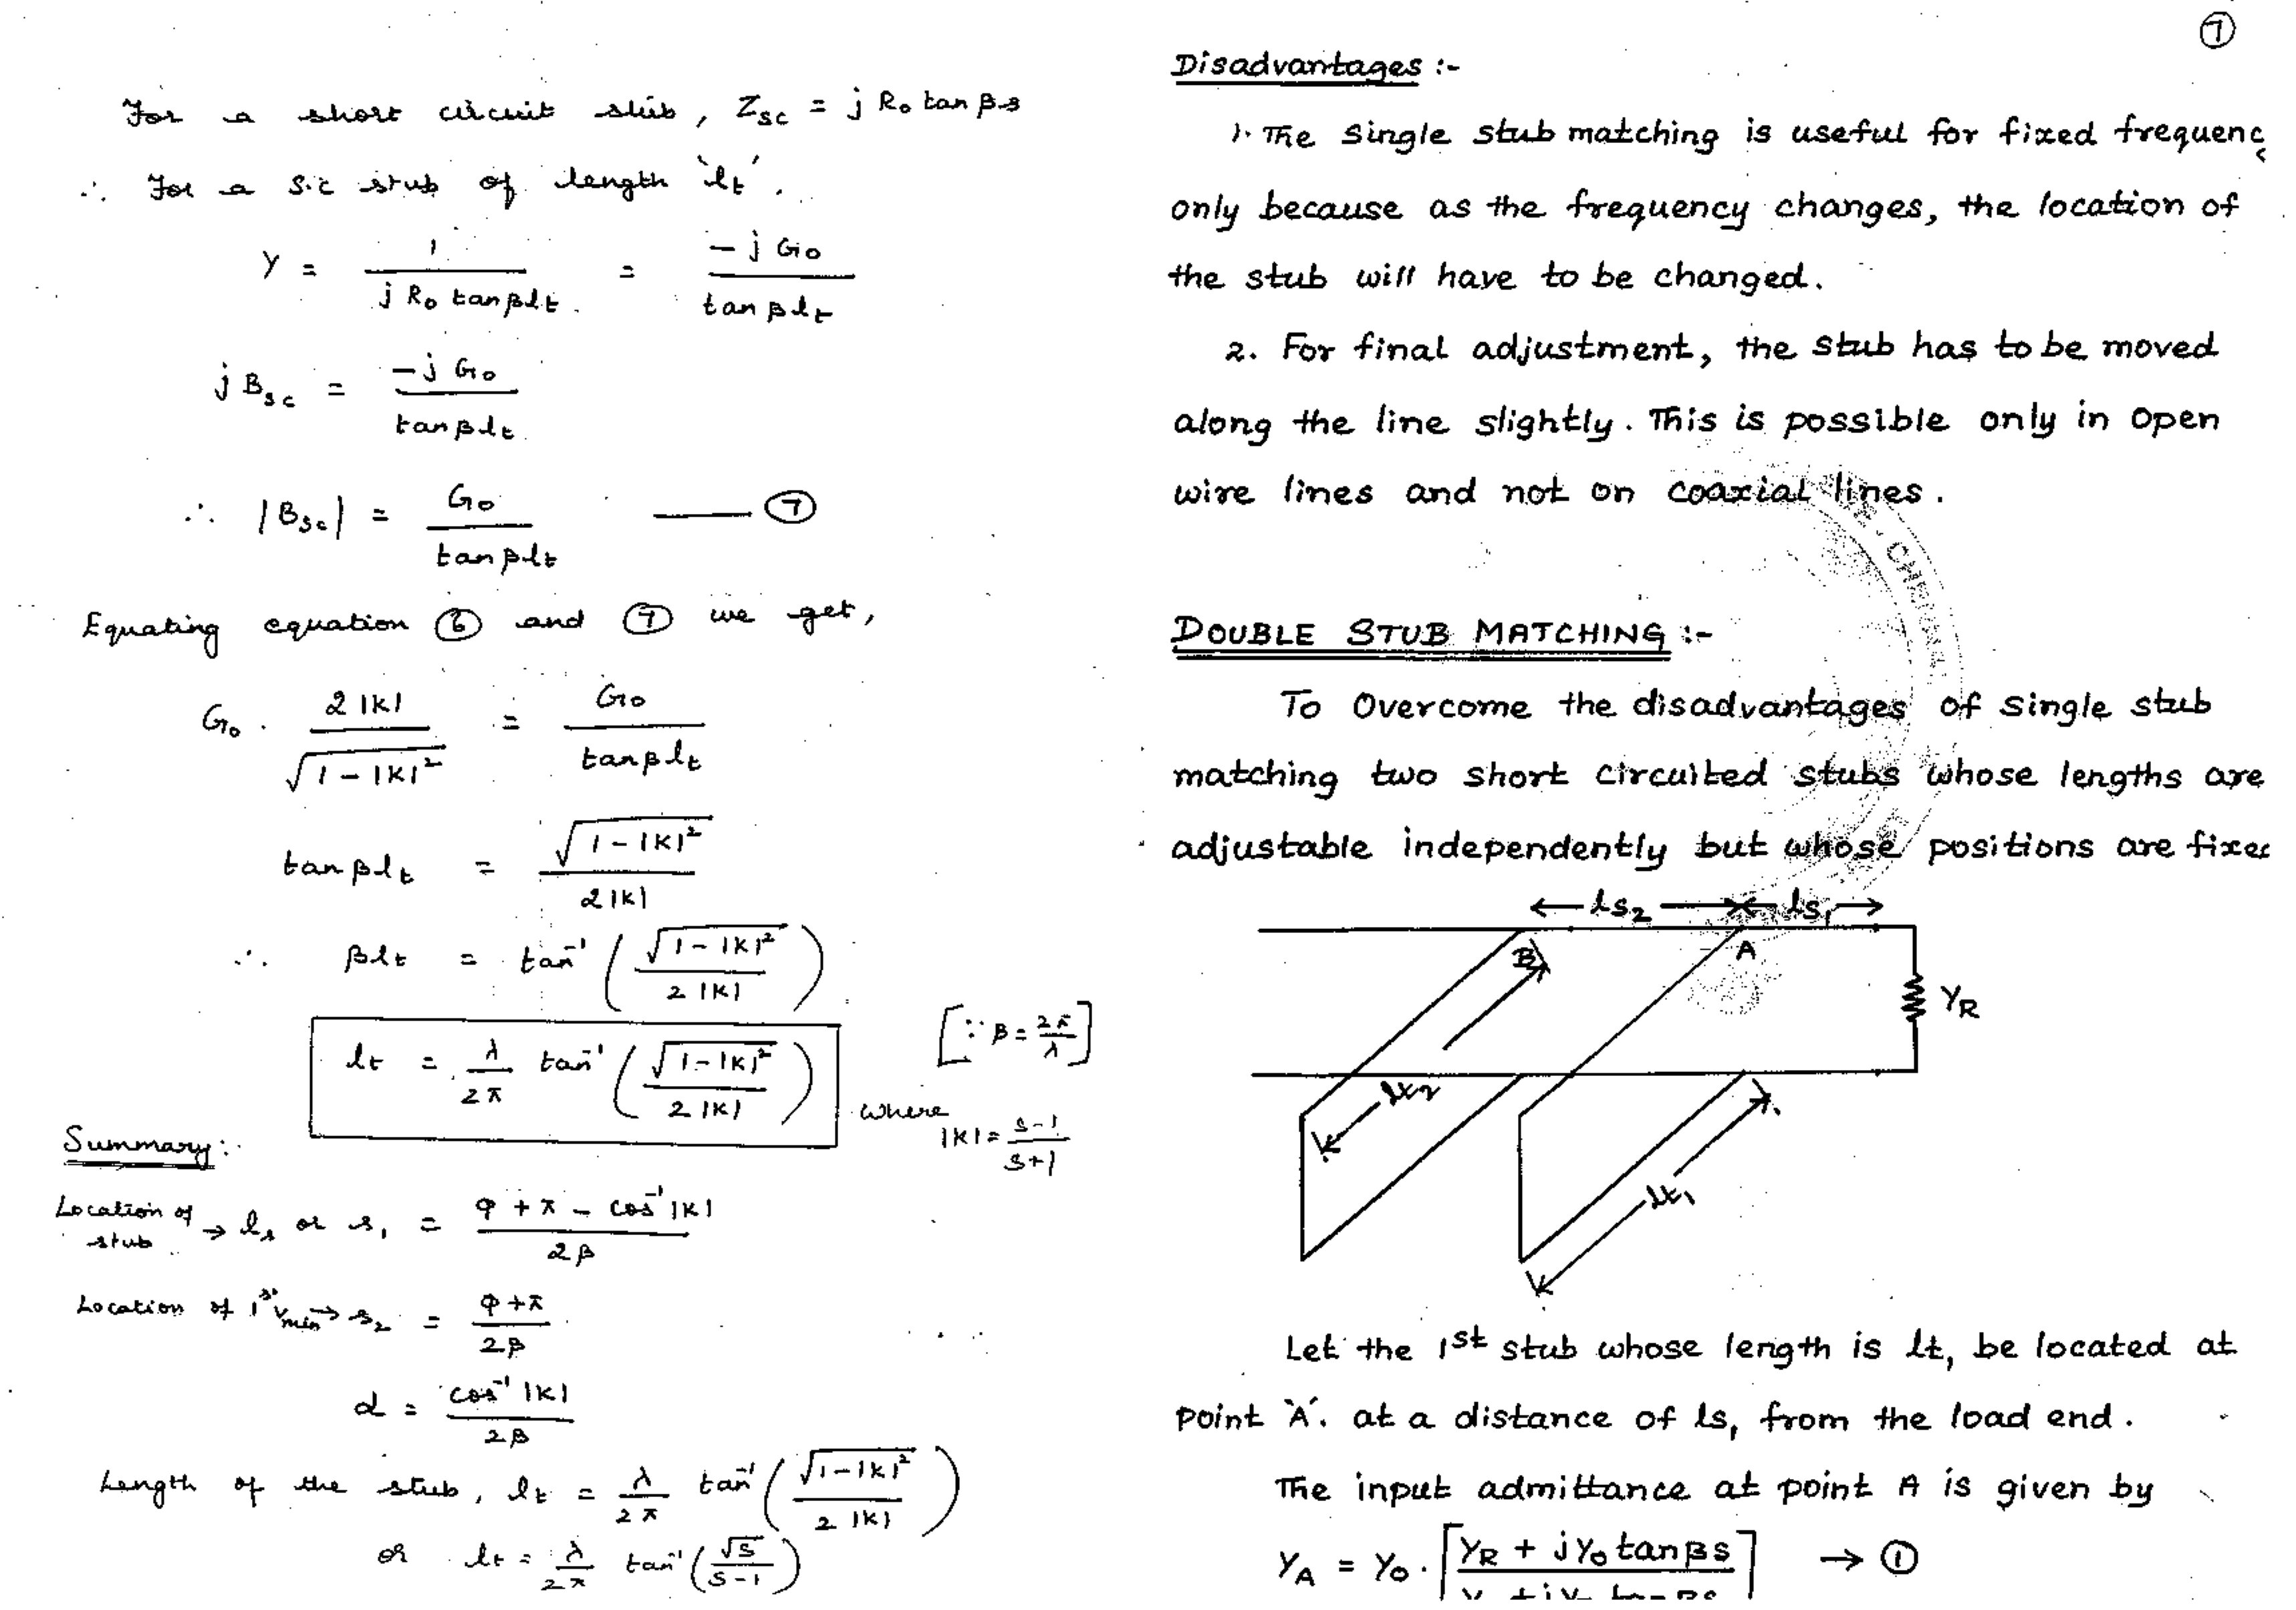 For a short circuit stub, Zsc = j R₀ tan βs
∴ For a s.c stub of length 'lt'.
Y = 1 / (j R₀ tan βlt) = -j G₀ / tan βlt
j Bsc = -j G₀ / tan βlt
∴ |Bsc| = G₀ / tan βlt —— ⑦
Equating equation ⑥ and ⑦ we get,
G₀ . 2|K| / √(1-|K|²) = G₀ / tan βlt
tan βlt = √(1-|K|²) / 2|K|
∴ βlt = tan⁻¹ ( √(1-|K|²) / 2|K| )
lt = λ/2π tan⁻¹ ( √(1-|K|²) / 2|K| ) [∵ β = 2π/λ]
where |K| = (s-1)/(s+1)
Summary:
Location of stub → ls or s₁ = (φ + π - cos⁻¹|K|) / 2β
Location of 1st Vmin → s₂ = (φ + π) / 2β
d = cos⁻¹|K| / 2β
Length of the stub, lt = λ/2π tan⁻¹ ( √(1-|K|²) / 2|K| )
or lt = λ/2π tan⁻¹ ( √s / (s-1) )
⑦
Disadvantages :-
1. The single stub matching is useful for fixed frequenc
only because as the frequency changes, the location of
the stub will have to be changed.
2. For final adjustment, the stub has to be moved
along the line slightly. This is possible only in open
wire lines and not on coaxial lines.
DOUBLE STUB MATCHING :-
To Overcome the disadvantages of single stub
matching two short circuited stubs whose lengths are
adjustable independently but whose positions are fixed
ls₂ ls₁
B A
YR
lt₂
lt₁
Let the 1st stub whose length is lt₁ be located at
point 'A'. at a distance of ls₁ from the load end.
The input admittance at point A is given by
YA = Y₀ . [ (YR + jY₀ tan βs) / → ①